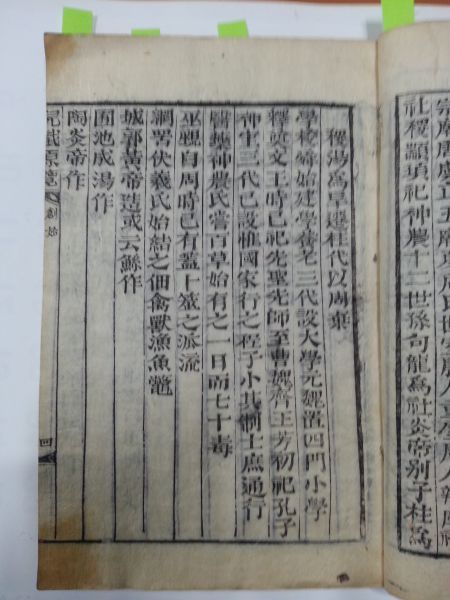 社稷顓頊祀神農十二世孫句龍爲社炎帝別子柱爲
稷湯爲旱遷柱代以周棄
學校舜始建學養老三代設大學元魏置四門小學
釋奠文王時已祀先聖先師至曹魏齊王芳初祀孔子
神主三代已設惟國家行之程子小其制士庶通行
醫藥神農氏嘗百草始有之一日而七十毒
巫覡自周時已有蓋卜筮之派流
網罟伏羲氏始結之佃禽獸漁魚鼈
城郭黃帝造或云鯀作
囿池成湯作
陶炎帝作
創始
四